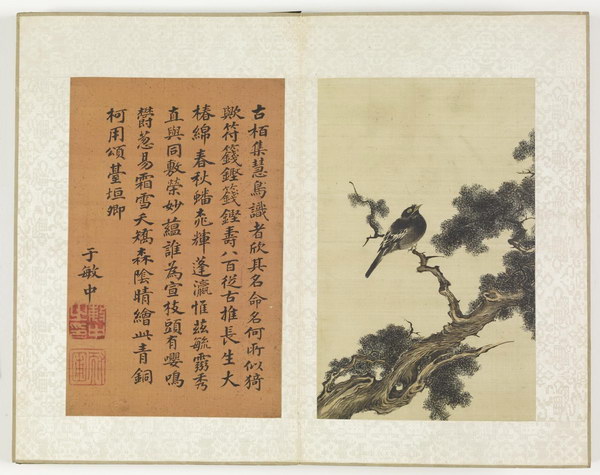 古栢集慧鳥識者欣其名命名何所似猗
歟符籛鏗籛鏗壽八百從古推長生大
椿綿春秋蟠桃輝蓬瀛惟茲毓靈秀
直與同敷榮妙蘊誰為宣枝頭有嚶鳴
欝蔥易霜雪夭矯森陰晴繪此青銅
柯用頌臺垣卿
于敏中